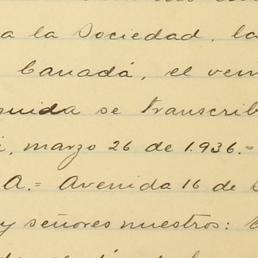 a la Sociedad, la
Canadá, el
se
marzo 26 de 1.936.=
A.= Avenida 16 de
y señores nuestros: